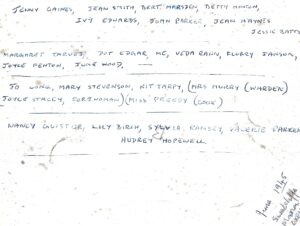 JENNY GAINES, JEAN SMITH, BERT MARSDEN, BETTY HORTON,
IVY EDWARDS, JOAN PARKER, JEAN HAYNES
JESSIE BATTS
MARGARET DOT EDGAR, ME, VEDA RANN, FLORRY JANSON,
JOYCE PENTON, JUNE WOOD,
JO LONG, MARY STEVENSON, KIT TARPY, (MRS MURRY (WARDEN)
JOYCE STACEY, (MISS PREEDY (COOK)
NANCY LILY BIRCH, SYLVIA RAMSEY, VALERIE PARKER
AUDREY HOPEWELL
June 1945